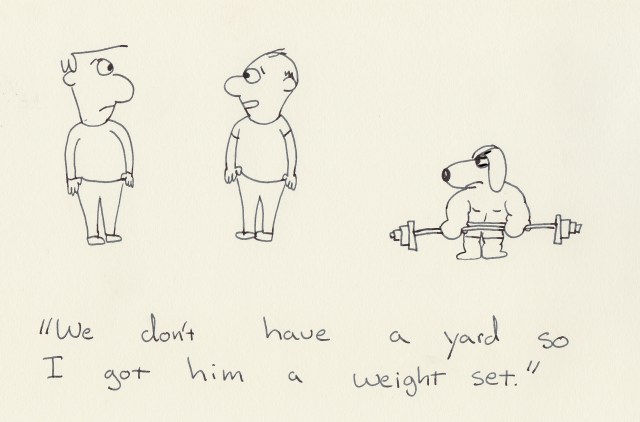 "We don't have a yard so
I got him a weight set."